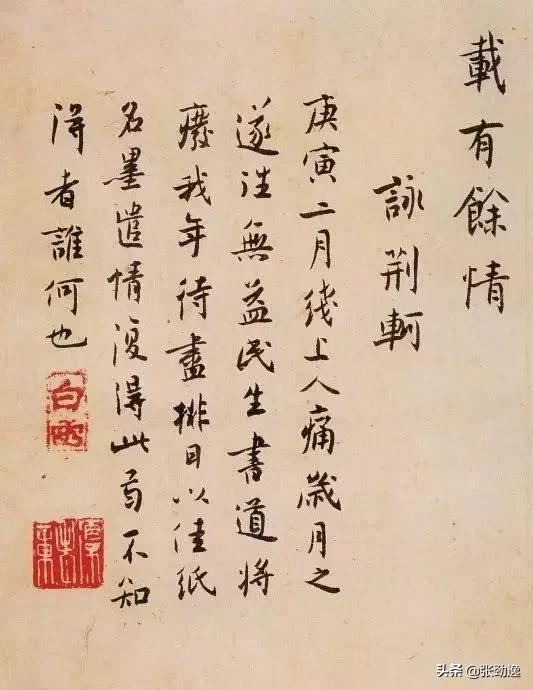 載有餘情
詠荆軻
庚寅二月綫上人痛歲月之
遂往無益民生書道將
癈我年待盡排日以佳紙
名墨遣情復得此百不知
得者誰何也
头条 @张劲逸